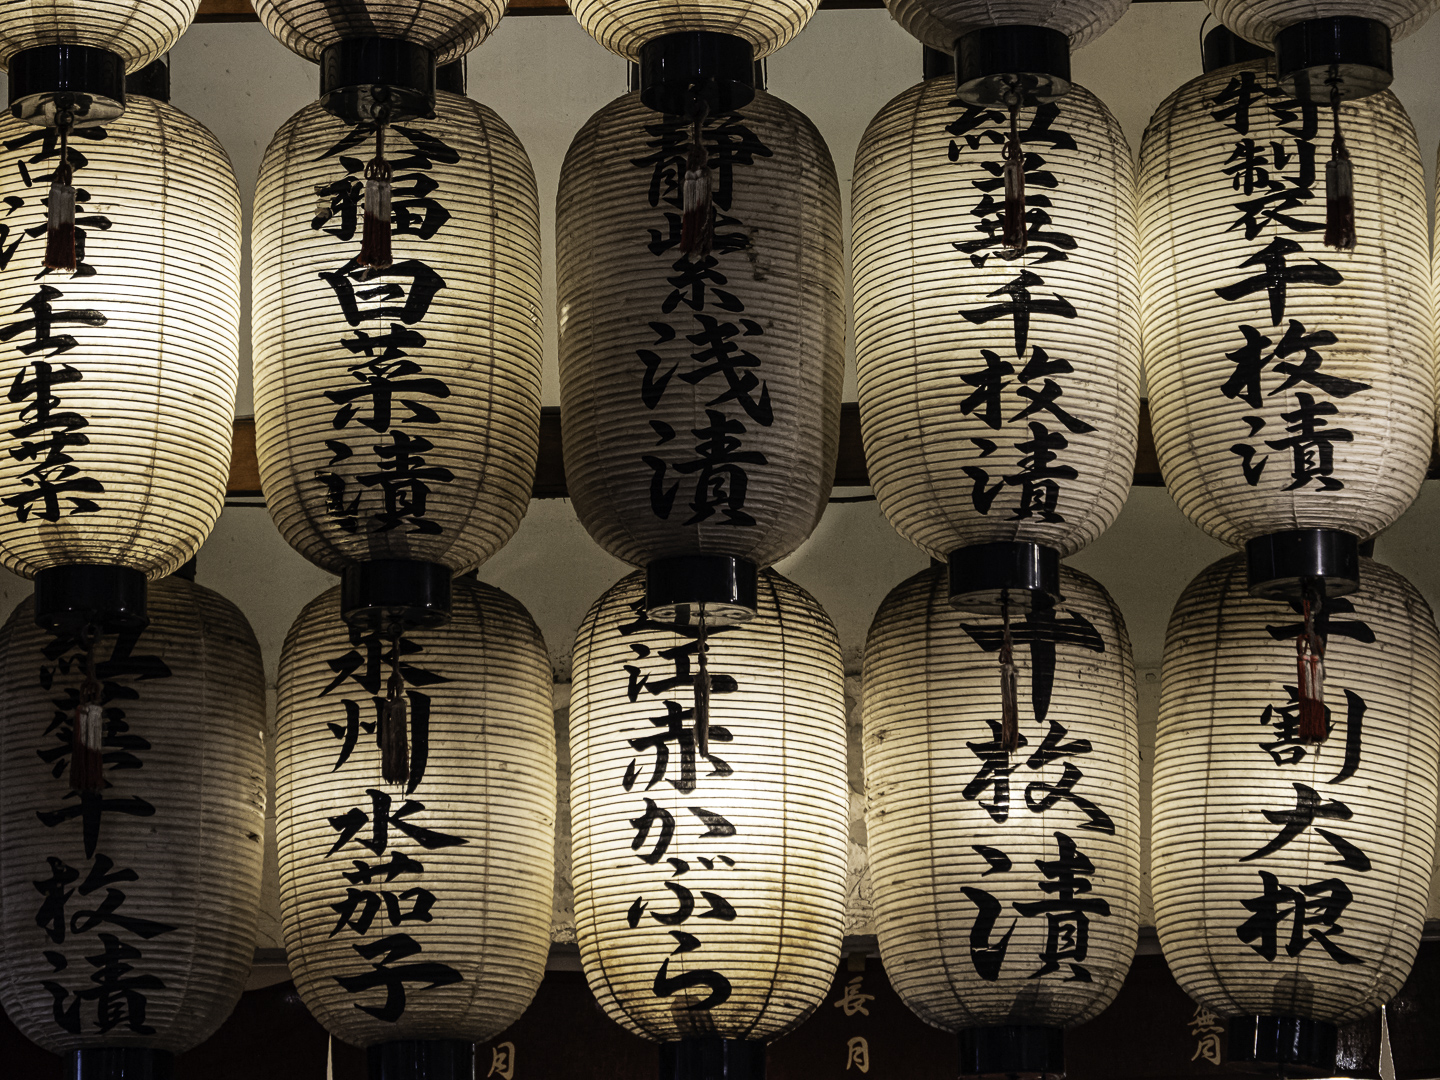 特製衣千枚漬
紅蕪千枚漬
静紫浅漬
大福白菜漬
古漬壬生菜
割大根
千枚漬
近江赤かぶら
泉州水茄子
紅蕪千枚漬
無月
長月
月